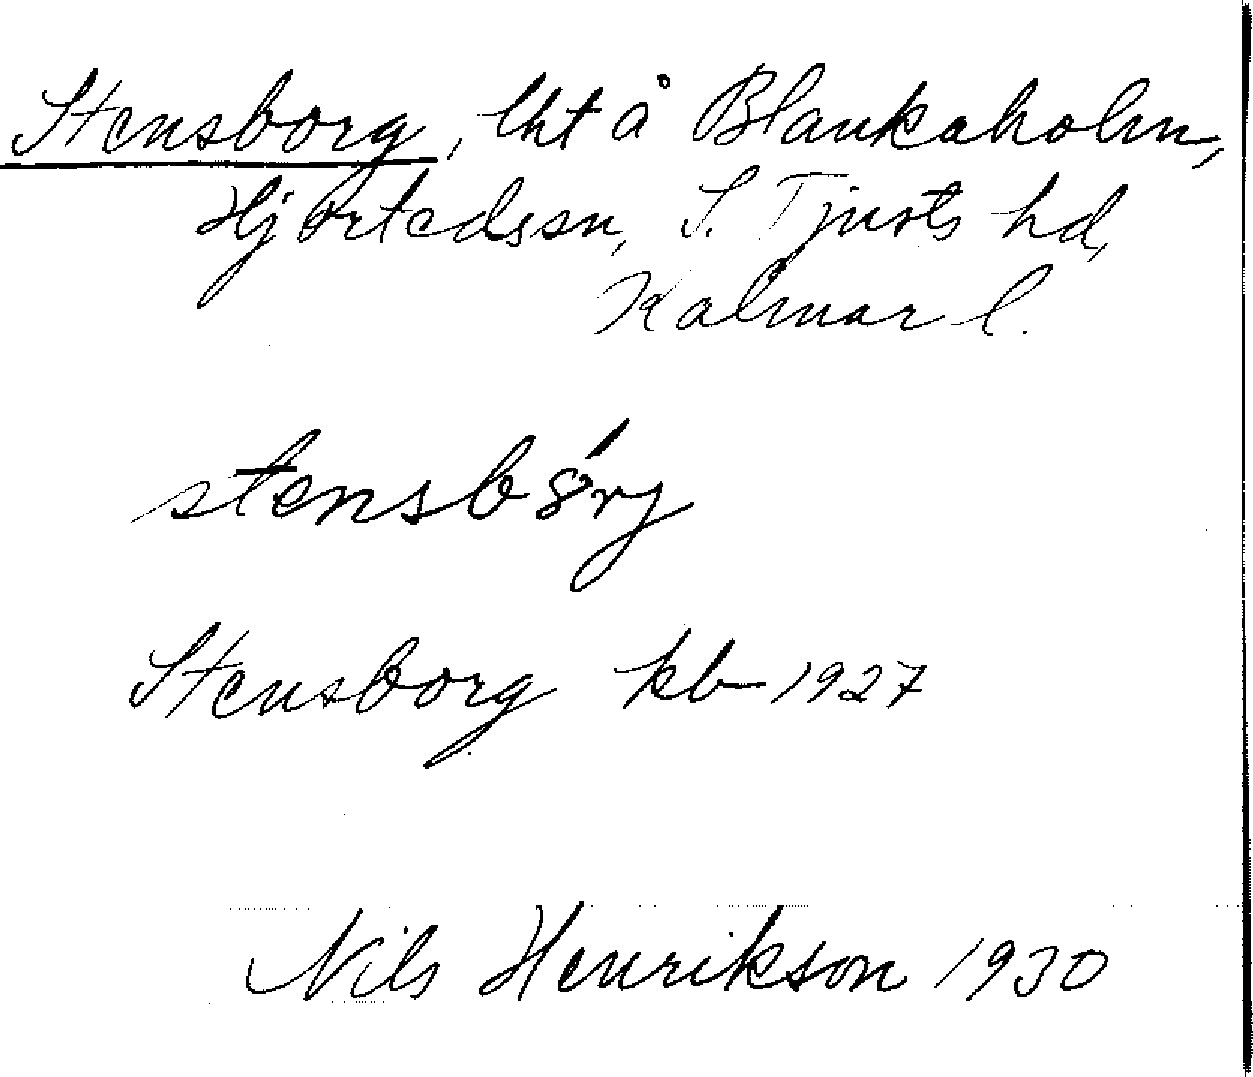 Stensborg, lht å Blankaholm,
Hjorteds sn, S. Tjusts hd,
Kalmar l.
stensbórj
Stensborg kb 1927
Nils Henrikson 1930